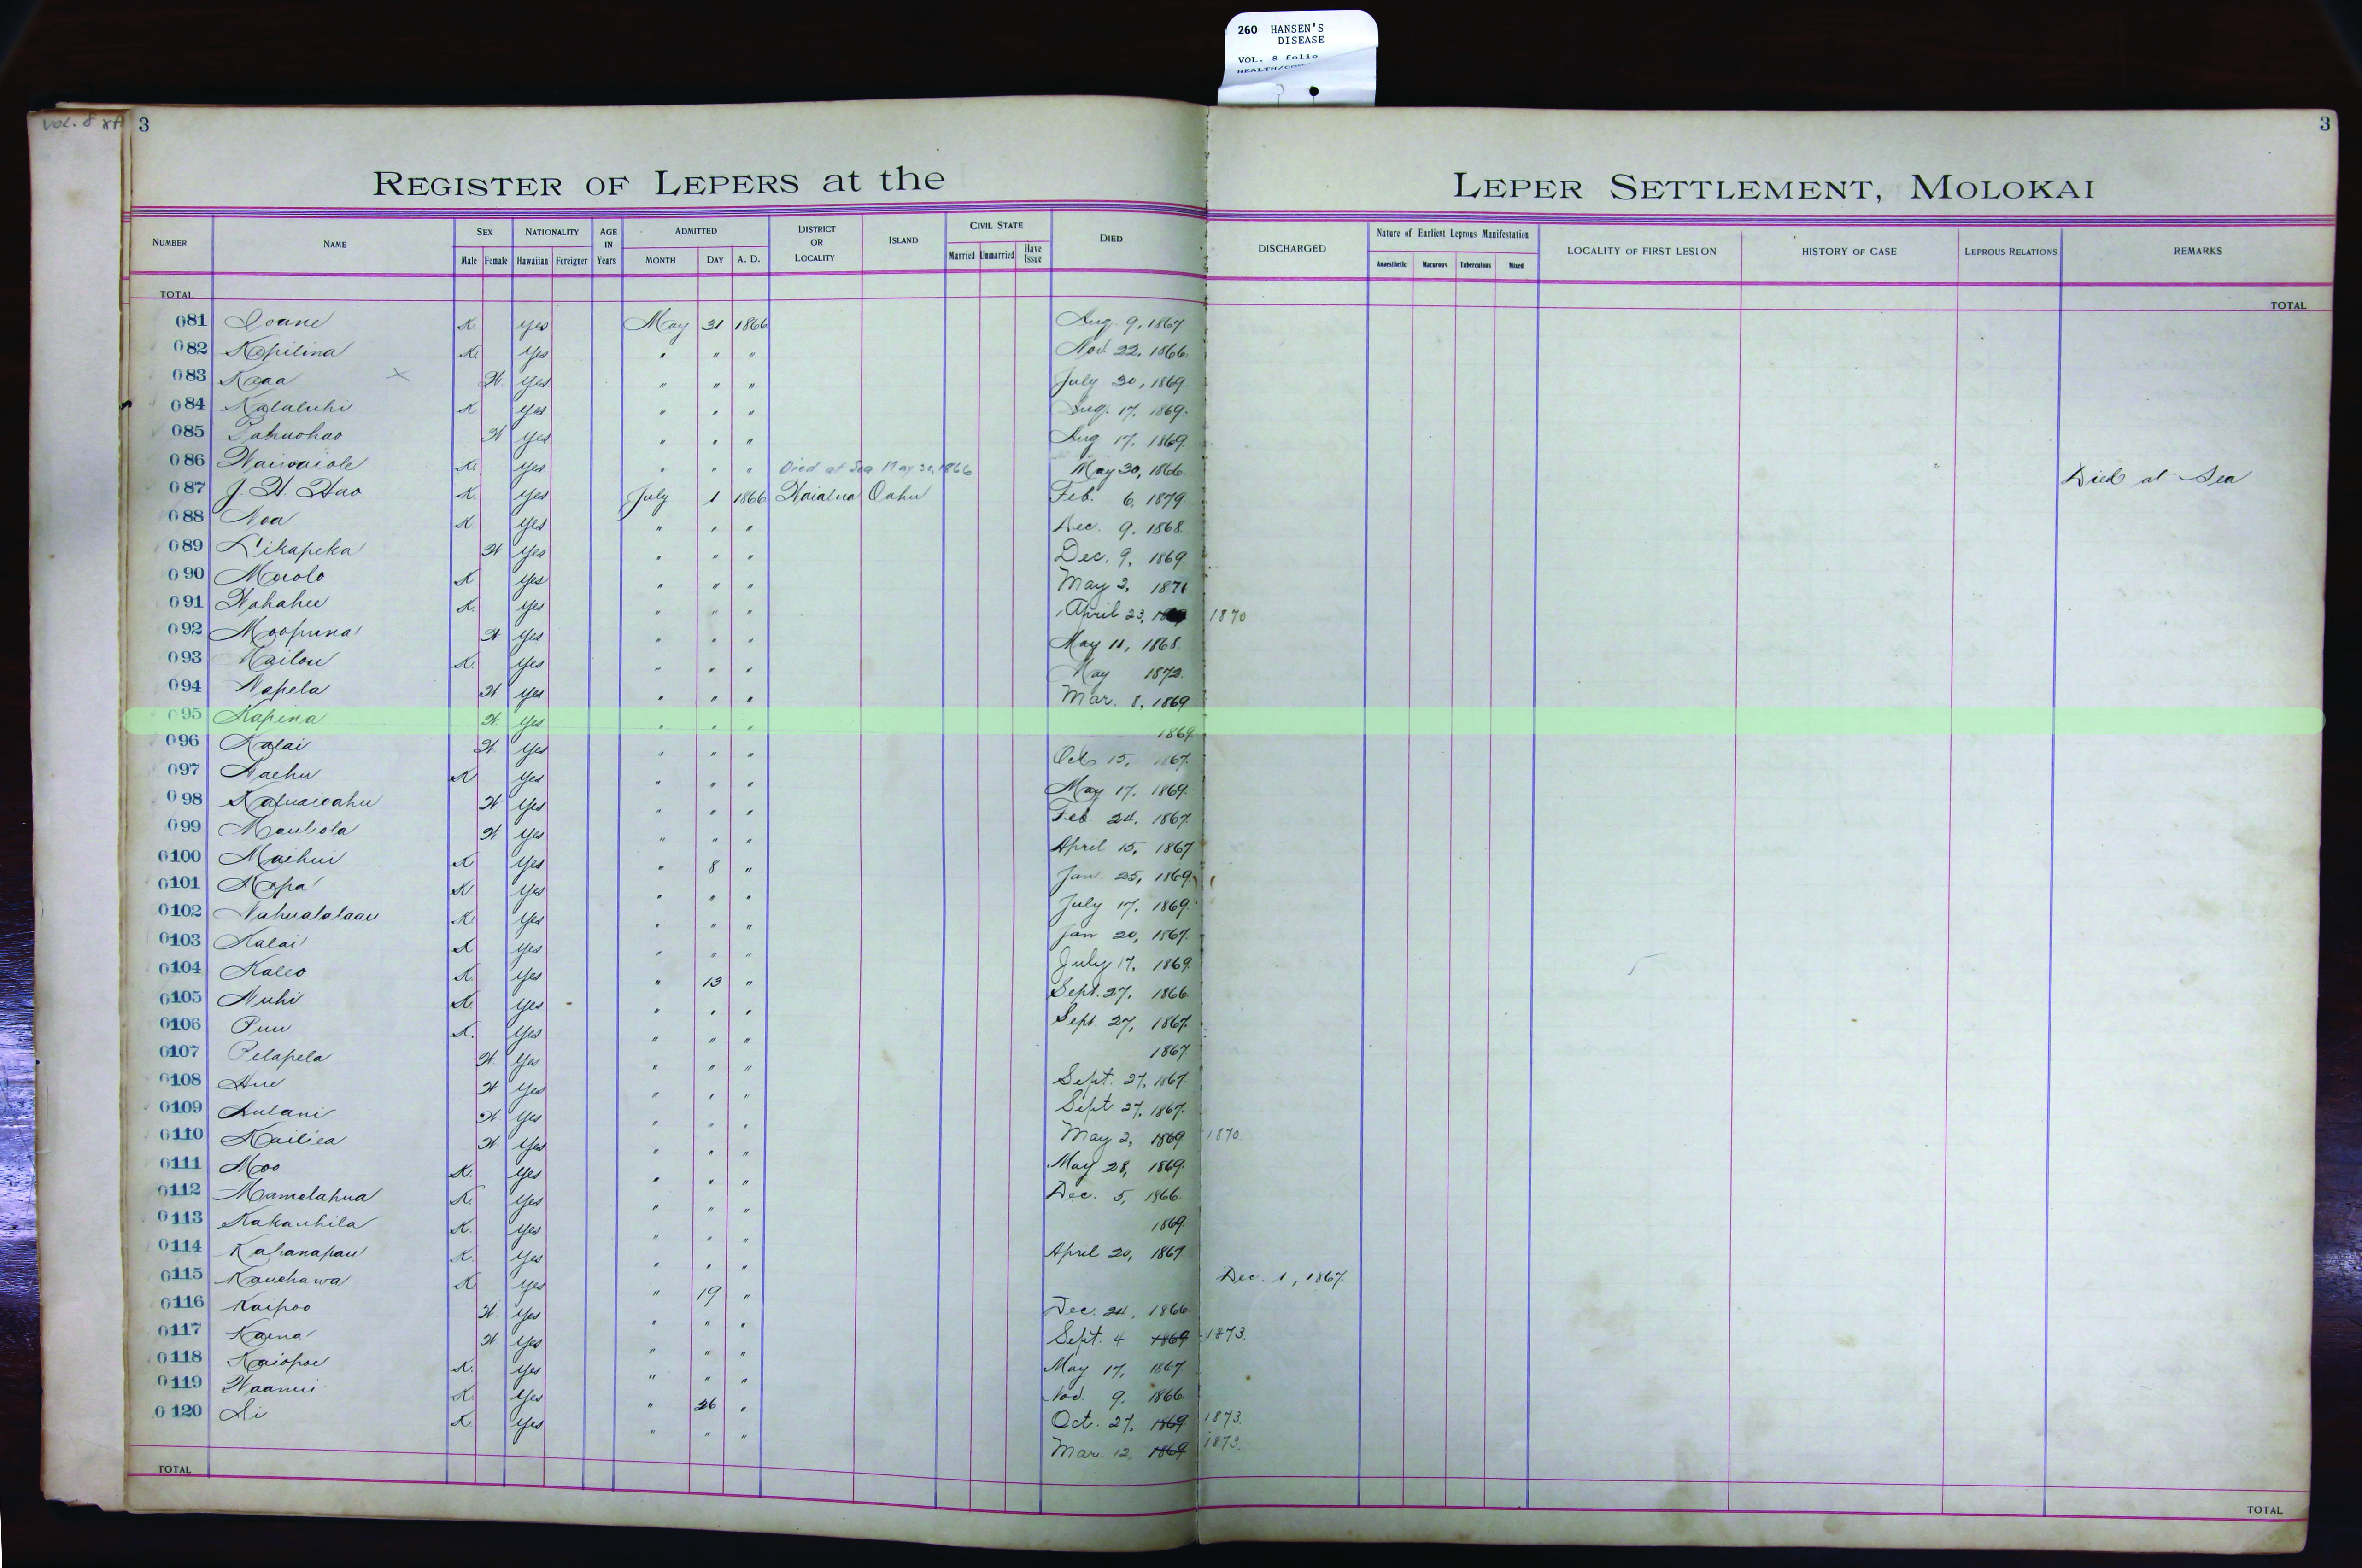 260 HANSEN'S
DISEASE
VOL. 8 folio
VOL. 8
3
3
REGISTER OF LEPERS at the LEPER SETTLEMENT, MOLOKAI
NUMBER NAME SEX NATIONALITY AGE IN Years ADMITTED DISTRICT OR LOCALITY ISLAND CIVIL STATE DIED DISCHARGED Nature of Earliest Leprous Manifestation LOCALITY OF FIRST LESION HISTORY OF CASE LEPROUS RELATIONS REMARKS
Male Female Hawaiian Foreigner MONTH DAY A. D. Married Unmarried Have Issue Anaesthetic Macurous Tuberculous Mixed
TOTAL TOTAL
081 Ioane K. yes May 31 1866 Aug. 9, 1867
082 Kapilina K. yes " " " Nov. 22, 1866
083 Kaaa X W. yes " " " July 30, 1869
084 Kalaluhi K yes " " " Aug. 17, 1869.
085 Pahuohao W yes " " " Aug 17, 1869.
086 Waiwaiole K. yes " " " Died at Sea May 30, 1866 May 30, 1866 Died at Sea
087 J. H. Hao K. yes July 1 1866 Waialua Oahu Feb. 6, 1879
088 Noa K. yes " " " Dec. 9, 1868.
089 Likapeka W yes " " " Dec. 9, 1869
090 Maolo K yes " " " May 2, 1871
091 Wahahee K. yes " " " April 23, 1870
092 Moopuna W yes " " " May 11, 1868.
093 Kailou K. yes " " " May 1872.
094 Napela W yes " " " Mar. 8, 1869
095 Kapena W. yes " " " 1869.
096 Kalai W yes " " " Oct 15, 1867.
097 Naehu K yes " " " May 17, 1869.
098 Kapuaioahu W yes " " " Feb. 24, 1867.
099 Mauliola W yes " " " April 15, 1867
0100 Maihui K yes " 8 " Jan. 25, 1869.
0101 Napa K yes " " " July 17, 1869.
0102 Nahualalaau K. yes " " " Jan 20, 1867.
0103 Kalai K yes " " " July 17, 1869.
0104 Kaleo K. yes " 13 " Sept. 27, 1866.
0105 Nuhi K. yes " " " Sept. 27, 1867.
0106 Puu K. yes " " " 1867
0107 Pelapela W yes " " " Sept. 27, 1867.
0108 Hue W yes " " " Sept 27, 1867.
0109 Lulani W. yes " " " May 2, 1869 1870
0110 Kailiea W. yes " " " May 28, 1869.
0111 Moo K. yes " " " Dec. 5, 1866.
0112 Mamelahua K. yes " " " 1869.
0113 Kakauhila K. yes " " " April 20, 1867
0114 Kahanapau K. yes " " " Dec. 1, 1867.
0115 Kauhawa K. yes " 19 " Dec. 24, 1866.
0116 Kaipoo W. yes " " " Sept. 4 1869 1873.
0117 Kaena W yes " " " May 17, 1867
0118 Kaiopoe K. yes " " " Nov. 9, 1866.
0119 Waanui K. yes " 26 " Oct. 27, 1869 1873.
0120 Li K. yes " " " Mar. 12, 1869 1873.
TOTAL TOTAL